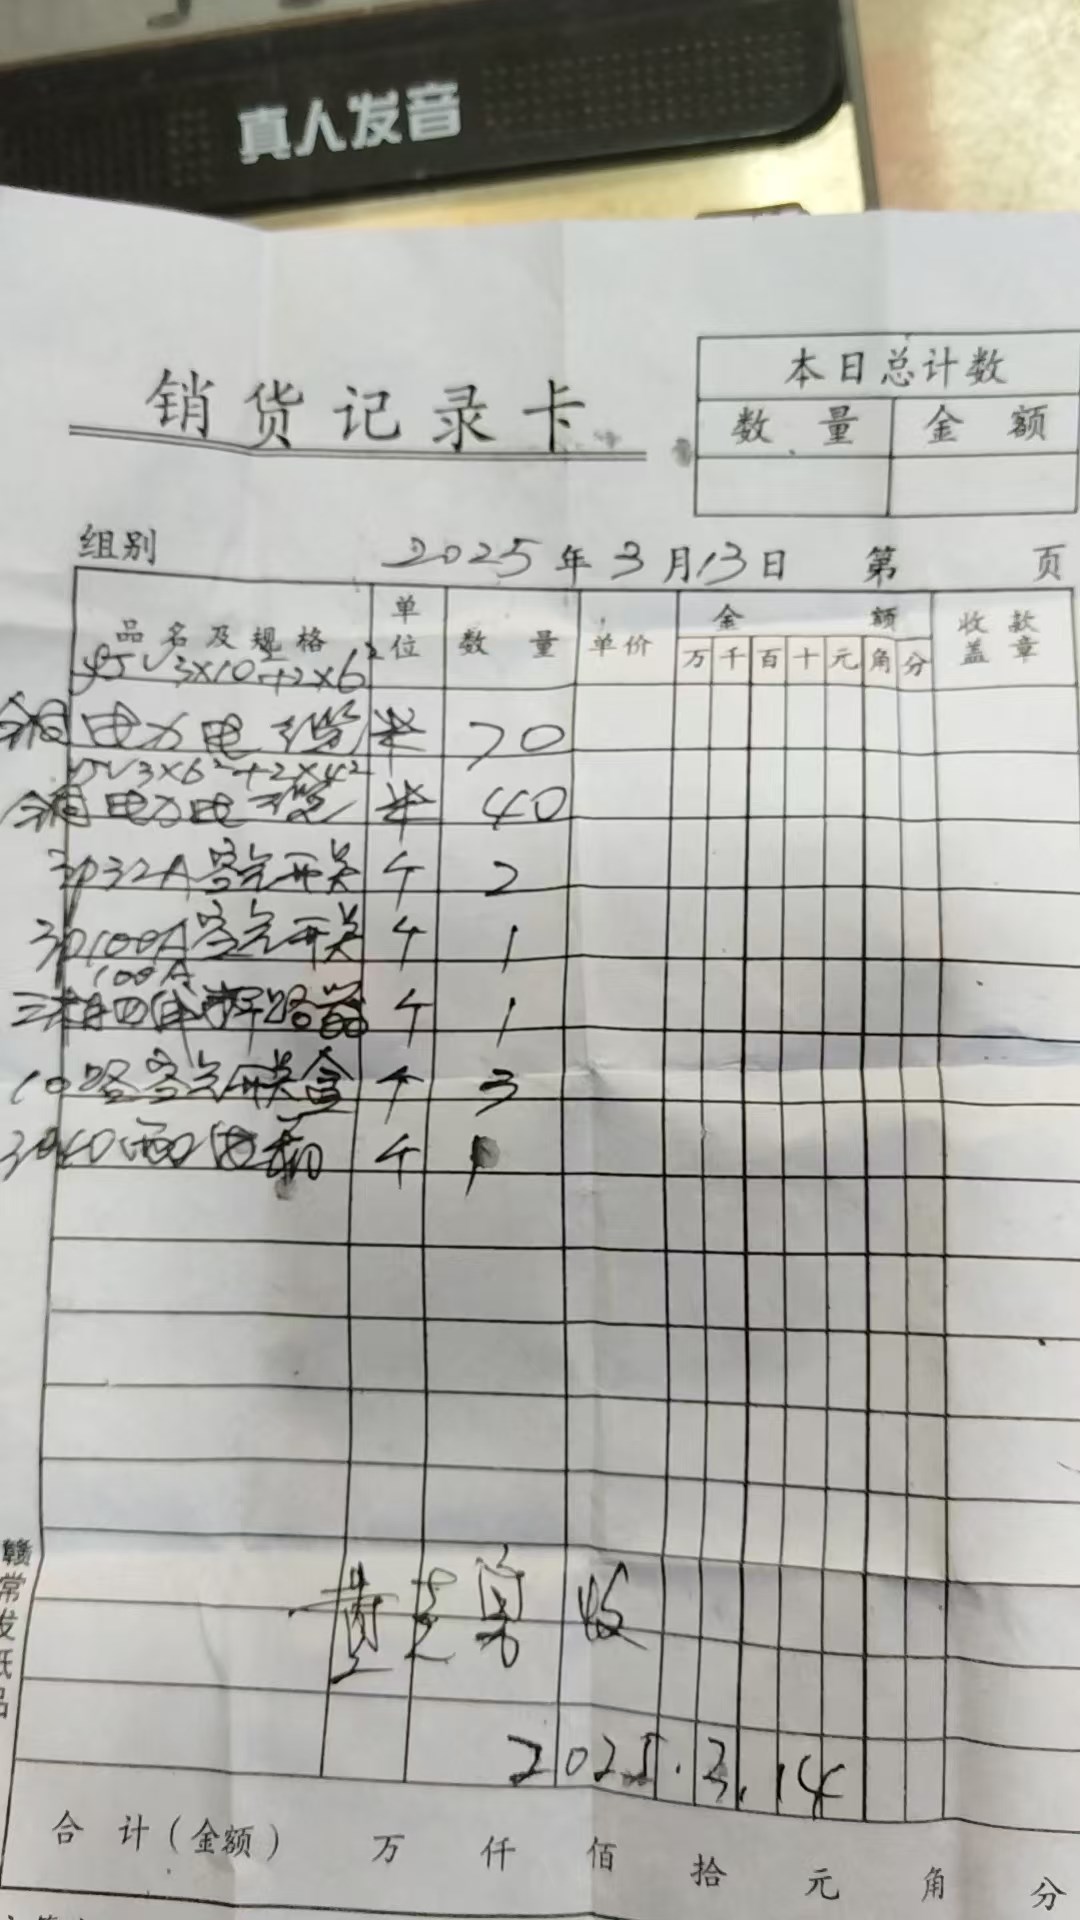 真人发音
销货记录卡
本日总计数
数量 金额
组别 2025年3月13日 第 页
品名及规格 单位 数量 单价 金额 收款盖章
万 千 百 十 元 角 分
YJV 3×10²+2×6²
铜电力电缆 米 70
YJV 3×6²+2×4²
铜电力电缆 米 40
3P32A空气开关 个 2
3P100A空气开关 个 1
100A
三相四 路器 个 1
10路空气开关盒 个 3
个 1
黄 收
2025.3.14
合计(金额) 万 仟 佰 拾 元 角 分
赣常发纸品